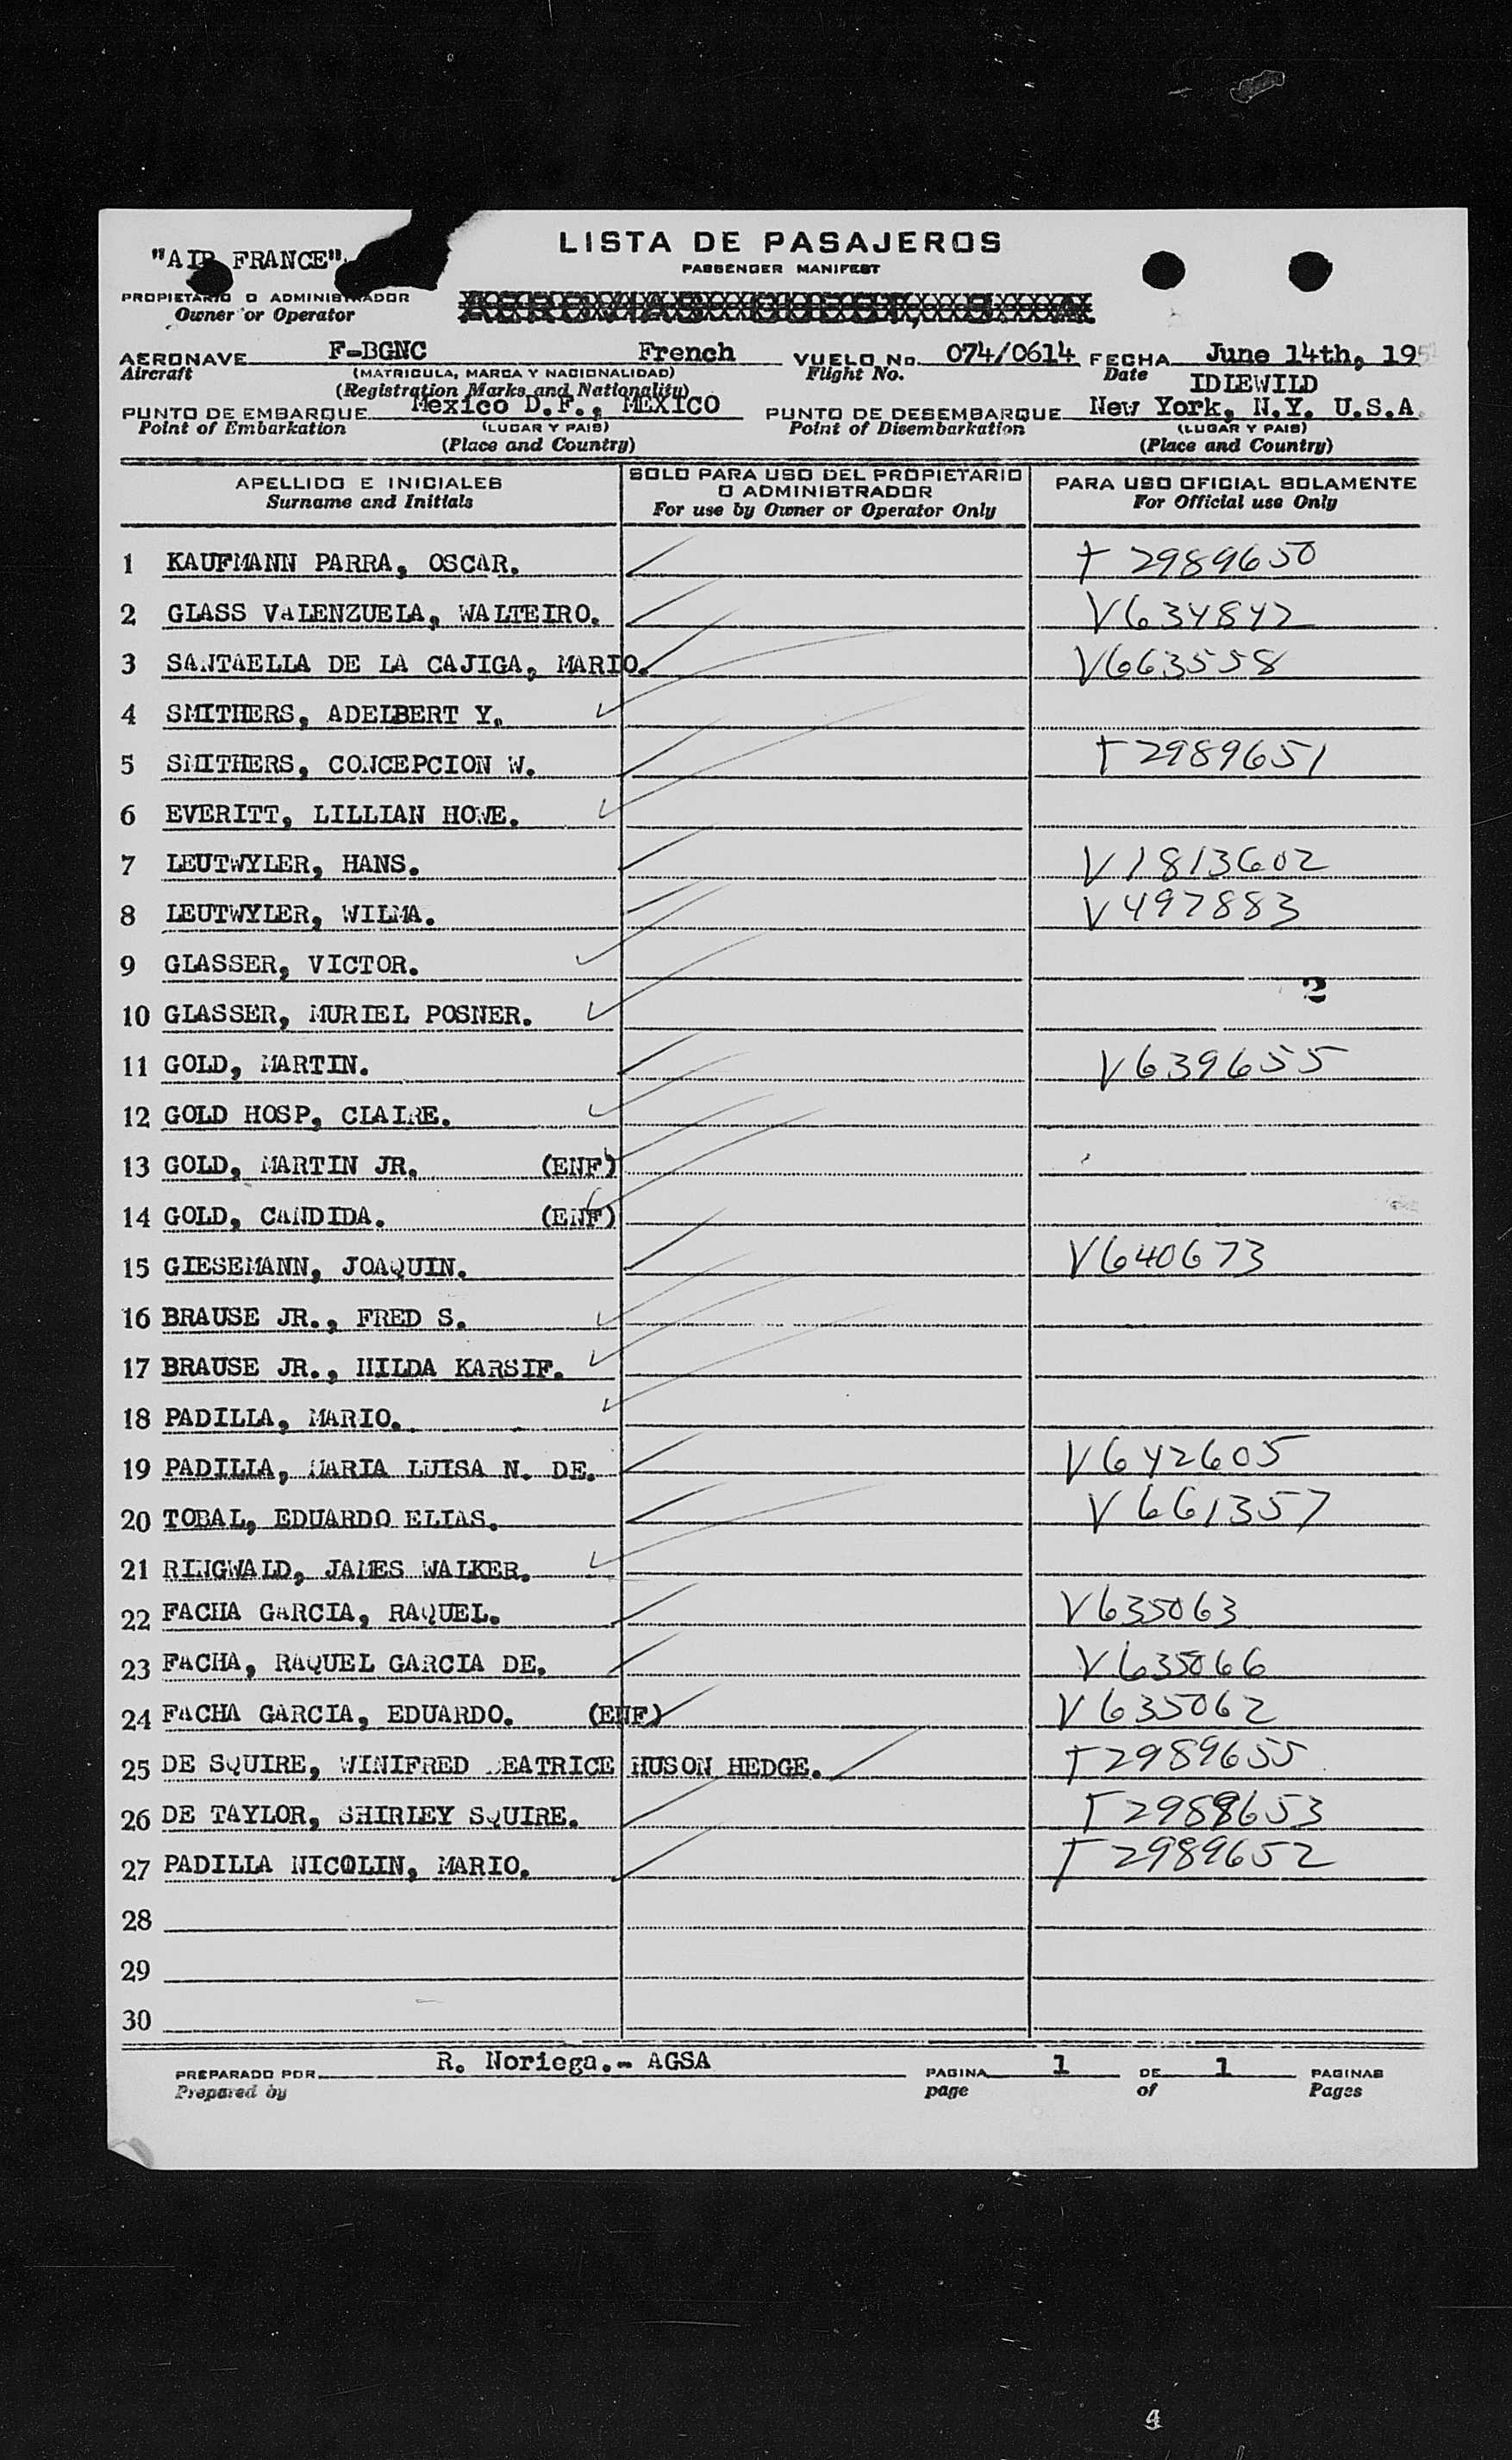 LISTA DE PASAJEROS
PASSENGER MANIFEST
"AIR FRANCE"
PROPIETARIO O ADMINISTRADOR
Owner or Operator
AEROVIAS GUEST, S. A.
AERONAVE F-BGNC French VUELO No. 074/0614 FECHA June 14th, 195
Aircraft (MATRICULA, MARCA Y NACIONALIDAD) Flight No. Date
(Registration Marks and Nationality) IDLEWILD
PUNTO DE EMBARQUE Mexico D.F., MEXICO PUNTO DE DESEMBARQUE New York, N.Y. U.S.A.
Point of Embarkation (LUGAR Y PAIS) Point of Disembarkation (LUGAR Y PAIS)
(Place and Country) (Place and Country)
APELLIDO E INICIALES SOLO PARA USO DEL PROPIETARIO O ADMINISTRADOR PARA USO OFICIAL SOLAMENTE
Surname and Initials For use by Owner or Operator Only For Official use Only
1 KAUFMANN PARRA, OSCAR. T 2989650
2 GLASS VALENZUELA, WALTEIRO. V634842
3 SANTAELLA DE LA CAJIGA, MARIO. V663558
4 SMITHERS, ADELBERT Y.
5 SMITHERS, CONCEPCION W. T2989651
6 EVERITT, LILLIAN HOWE.
7 LEUTWYLER, HANS. V1813602
8 LEUTWYLER, WILMA. V497883
9 GLASSER, VICTOR.
2
10 GLASSER, MURIEL POSNER.
11 GOLD, MARTIN. V639655
12 GOLD HOSP, CLAIRE.
13 GOLD, MARTIN JR. (ENF)
14 GOLD, CANDIDA. (ENF)
15 GIESEMANN, JOAQUIN. V640673
16 BRAUSE JR., FRED S.
17 BRAUSE JR., HILDA KARSIF.
18 PADILLA, MARIO.
19 PADILLA, MARIA LUISA N. DE. V642605
20 TOBAL, EDUARDO ELIAS. V661357
21 RINGWALD, JAMES WALKER.
22 FACHA GARCIA, RAQUEL. V635063
23 FACHA, RAQUEL GARCIA DE. V635066
24 FACHA GARCIA, EDUARDO. (ENF) V635062
25 DE SQUIRE, WINIFRED BEATRICE HUSON HEDGE. T2989655
26 DE TAYLOR, SHIRLEY SQUIRE. T2989653
27 PADILLA NICOLIN, MARIO. T2989652
28
29
30
PREPARADO POR R. Noriega.- AGSA PAGINA 1 DE 1 PAGINAS
Prepared by page of Pages
4